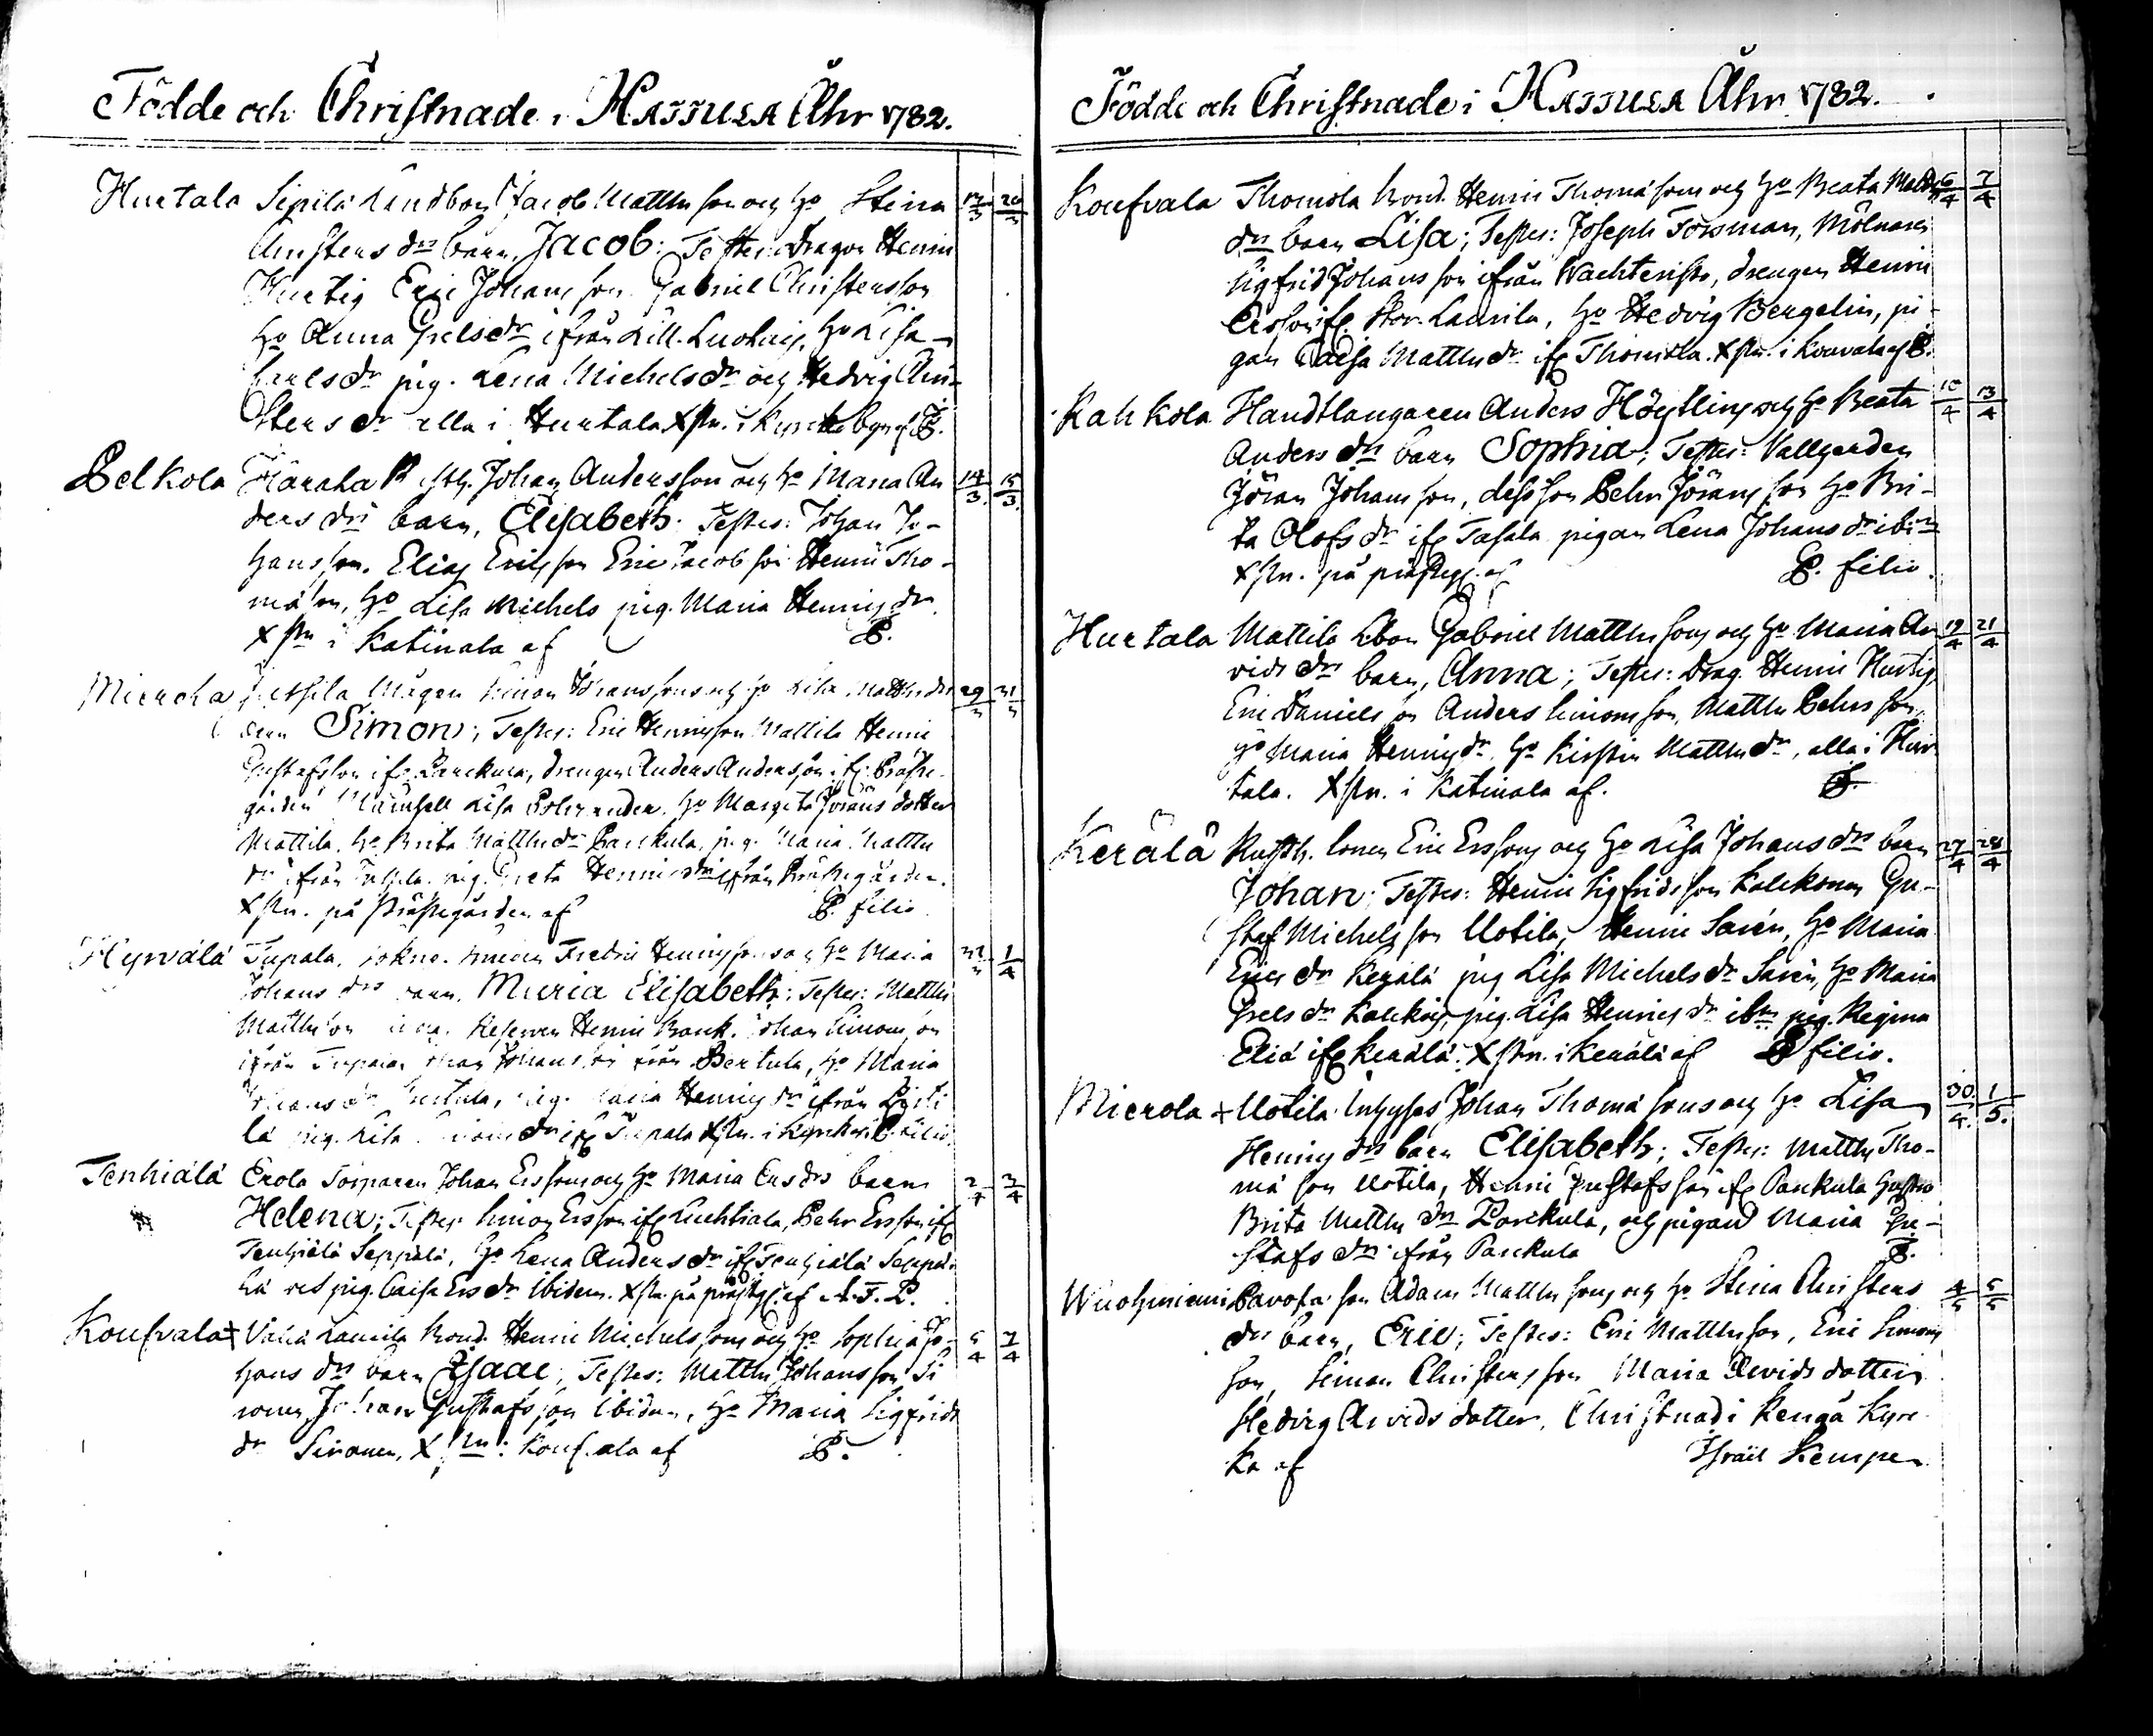 Födde och Christnade i HATTULA Åhr 1782.
Hurtala Sipilä Landbon Jacob Matthsson och Ho Stina 17/3 20/3
Christens drs barn, Jacob: Testes: Dragon Henric
Hurtig Eric Johansson Gabriel Christersson
Ho Anna Grelsdr ifrån Lill. Luolais, Ho Lisa
Carlsdr pig. Lena Michelsdr och Hedvig Chri-
sters dr alla i Hurtala Xstn. i Kyrckobyn af P.
Pelkola Haraka Johan Andersson och Ho Maria An 14/3 15/3
ders drs barn, Elisabeth. Testes: Johan Jo-
hansson. Elias Ericsson Eric Jacobson Henric Tho-
mæson, Ho Lisa Michels pig. Maria Henricsdr
Xstn i Katinala af P.
Mierola Mågen Simon Johanssons och Ho Lisa Matthsdrs 29/3 31/3
barn Simon; Testes: Eric Henricsson Mattila Henric
Gustafsson ifr Parckula, drengen Anders Andersson ifr Präste-
gården Mamsell Lisa Ho Margeta Jöransdotter
Mattila, Ho Brita Matthsdr Parckula, pig. Maria Matths
dr ifrån pig. Greta Henricsdr ifrån Prästegården.
Xstn. på Prästegården af P. filio
Hyrvälä Tupala, Fredric Henricssons och Ho Maria 31/3 1/4
Johans drs barn, Maria Elisabeth; Testes: Matths
Matthsson Reserven Henric Brask. Johan Simonsson
ifrån Tupala Johan Johansson ifrån Pertula, Ho Maria
Johansdr Pertula, pig. Maria Henricsdr ifrån
lä pig. Lisa dr ifr Tupala Xstn. i Kyrckan P. filio
Tenhiälä Erola Torparen Johan Erssons och Ho Maria Ersdrs barn 2/4 3/4
Helena; Testes Simon Ersson ifr Luehtiala, Pehr Ersson ifr
Tenhiälä Seppälä, Ho Lena Andersdr ifr Tenhiälä Seppä-
lä ock pig. Caisa Ersdr ibidem. Xstn. på prästg. af A. F. P.
Koufvala + Laurila Bond. Henric Michelssons och Ho Sophia Jo- 5/4 7/4
hans drs barn Isaac; Testes: Matths Johansson Si
ronen, Johan Gustafsson ibidem, Ho Maria Sigfrids
dr Sironen, Xstn: Koufvala af P.
Födde och Christnade i HATTULA Åhr 1782.
Koufvala Thomola bond. Henric Thomæsons och Ho Beata Matths 6/4 7/4
drs barn Lisa; Testes: Joseph Forsman, Mölnaren
Sigfrid Johansson ifrån Wachteristo, drengen Henric
Ersson ifr Stor-Laurila, Ho Hedvig Bergelin, pi-
gan Caisa Matthsdr ifr Thomola. Xstn. i Kouvala af P.
Kahkola Handtlangaren Anders Högtling och Ho Beata 10/4 13/4
Anders drs barn Sophia; Testes: Vallgerden
Jöran Johansson, dess son Pehr Jöransson Ho Bri-
ta Olofsdr ifr Tasala pigan Lena Johansdr ibm
Xstn. på prästeg. af P. filio.
Hurtala Mattila Lbon Gabriel Matthssons och Ho Maria Ar 19/4 21/4
vids drs barn, Anna; Testes: Drag. Henric Hurtig,
Eric Danielsson Anders Simonsson, Matths Pehrsson,
Ho Maria Henricsdr, Ho Kirstin Matthsdr, alla i Hur
tala. Xstn. i Katinala af. P.
Kerälä Rusth. sonen Eric Erssons och Ho Lisa Johans drs barn 27/4 28/4
Johan; Testes: Henric Sigfridsson Kalckonen Gu-
staf Michelsson Uotila, Henric Sarén, Ho Maria
Ericsdr Kerälä pig Lisa Michelsdr Sarén, Ho Maria
Grelsdr Kalckois, pig. Lisa Henricsdr ibm pig. Regina
Eliæ ifr Kerälä. Xstn. i Kerälä af P filio.
Mierola + Uotila Inhyses Johan Thomæ sons och Ho Lisa 30/4. 1/5.
Henrics drs barn Elisabeth; Testes: Matths Tho-
mæ son Uotila, Henric Gustafsson ifr Parckula hustro
Brita Matths dr Parckula, och pigan Maria Gu-
stafs dr ifrån Parckula P.
Wuohiniemi Pavola son Adam Matthssons och Ho Stina Christers 4/5 5/5
drs barn, Eric; Testes: Eric Matthsson, Eric Simons
son, Simon Christersson Maria Arvids dotter
Hedvig Arvids dotter. Christnad i Rengå Kyrc
ka af Israël Kempe